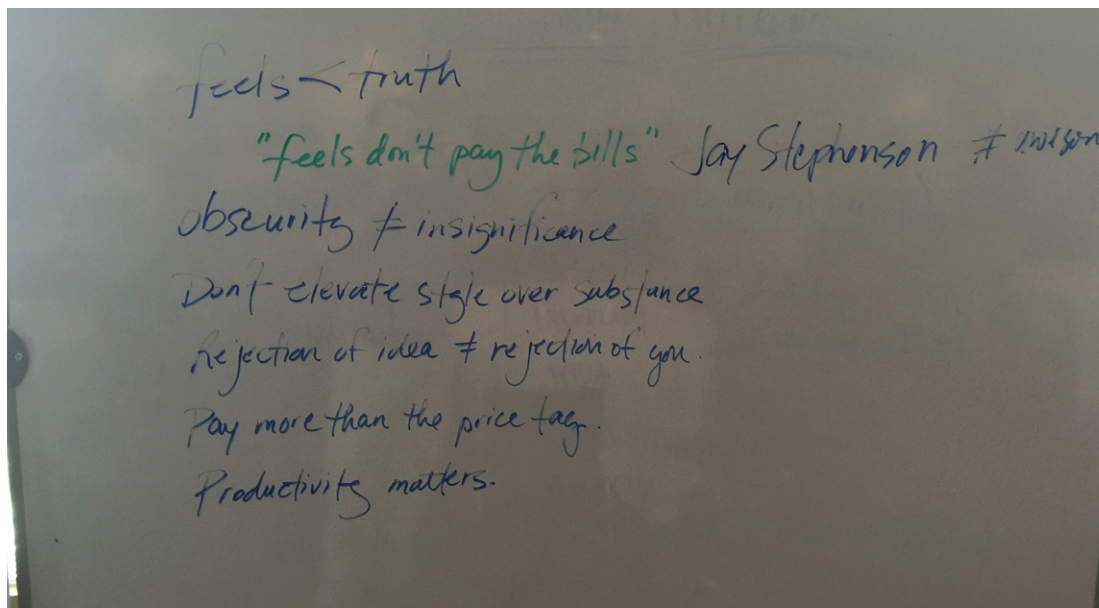 feels < truth
"feels don't pay the bills" Jay Stephenson #
obscurity ≠ insignificance
Don't elevate style over substance
Rejection of idea ≠ rejection of you.
Pay more than the price tag.
Productivity matters.